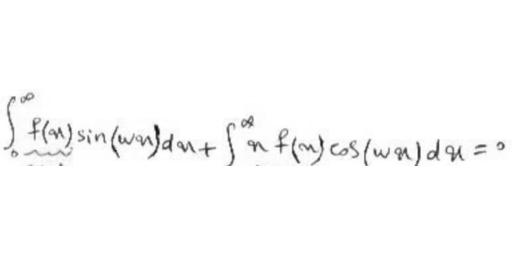 ∫₀^∞ f(x) sin(wx)dx + ∫^∞ x f(x) cos(wx) dx = 0